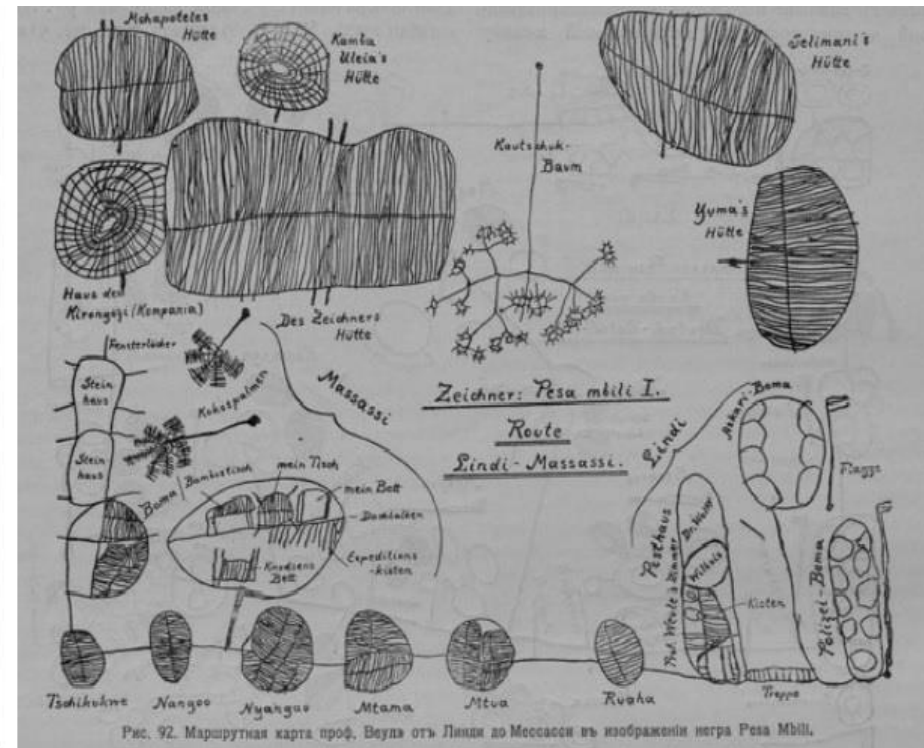 Mohapoteles
Hütte
Kamba
Uleia's
Hütte
Selimani's
Hütte
Kautschuk-
Baum
Yuma's
Hütte
Haus des
Kirongozi (Kompania)
Des Zeichners
Hütte
Fensterlöcher
Stein
haus
Stein
haus
Kokospalmen
Massassi
Zeichner: Pesa mbili I.
Route
Lindi-Massassi.
Lindi
Askari-Boma
Flagge
Boma
Bambustisch
mein Tisch
mein Bett
Dachbalken
Expeditions-
kisten
Knudsens
Bett
Posthaus
Dr. Wolff
Willnis
Prof. Weule's Zimmer
Kisten
Polizei-Boma
Treppe
Tschikukwe
Nangoo
Nyangao
Mtama
Mtua
Ruaha
Рис. 92. Маршрутная карта проф. Веула отъ Линди до Мессасси въ изображеніи негра Pesa Mbili.